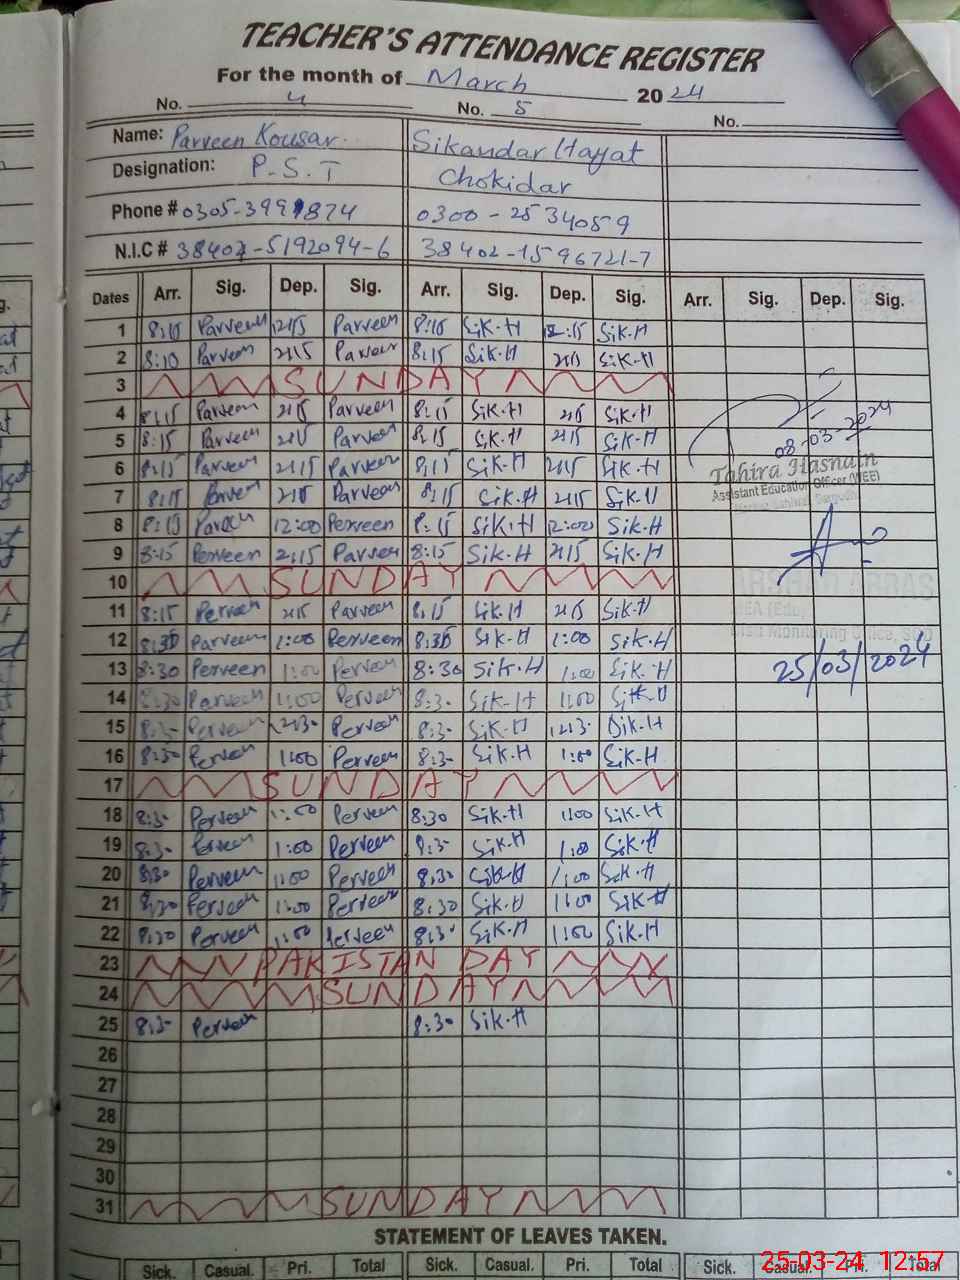 TEACHER'S ATTENDANCE REGISTER
For the month of March 2024
No. 4 No. 5 No.
Name: Parveen Kousar. Sikandar Hayat
Designation: P.S.T Chokidar
Phone # 0305-3991874 0300-2534059
N.I.C # 38407-5192094-6 38402-1596721-7
Dates Arr. Sig. Dep. Sig. Arr. Sig. Dep. Sig. Arr. Sig. Dep. Sig.
1 8:10 Parveen 12:15 Parveen 8:10 Sik-H 12:15 Sik.H
2 8:10 Parveen 2:15 Parveen 8:15 Sik.H 2:15 Sik-H
3 SUNDAY
4 8:15 Parveen 2:15 Parveen 8:15 Sik.H 2:15 Sik.H
5 8:15 Parveen 2:15 Parveen 8:15 Sik.H 2:15 Sik-H
08-03-2024
6 8:15 Parveen 2:15 Parveen 8:15 Sik-H 2:15 Sik-H
Tahira Hasnain
Assistant Education Officer (WEE)
7 8:15 Parveen 2:15 Parveen 8:15 Sik.H 2:15 Sik.H
8 8:15 12:00 Perveen 8:15 Sik.H 12:00 Sik.H
9 8:15 Perveen 2:15 Parveen 8:15 Sik.H 2:15 Sik.H
10 SUNDAY
ARSHAD ABBAS
MEA (Edu)
11 8:15 Perveen 2:15 Parveen 8:15 Sik.H 2:15 Sik.H
12 8:30 Parveen 1:00 Perveen 8:30 Sik-H 1:00 Sik.H
25/03/2024
13 8:30 Perveen 1:00 Perveen 8:30 Sik.H 1:00 Sik.H
14 8:30 Parveen 1:00 Perveen 8:30 Sik-H 1:00 Sik.H
15 8:30 Perveen 12:30 Perveen 8:30 Sik-H 12:30 Sik.H
16 8:30 Perveen 1:00 Perveen 8:30 Sik.H 1:00 Sik.H
17 SUNDAY
18 8:30 Perveen 1:00 Perveen 8:30 Sik.H 1:00 Sik.H
19 8:30 Perveen 1:00 Perveen 8:30 Sik.H 1:00 Sik.H
20 8:30 Perveen 1:00 Perveen 8:30 Sik.H 1:00 Sik.H
21 8:30 Perveen 1:00 Perveen 8:30 Sik.H 1:00 Sik.H
22 8:30 Perveen 1:00 Perveen 8:30 Sik.H 1:00 Sik.H
23 PAKISTAN DAY
24 SUNDAY
25 8:30 Perveen 8:30 Sik.H
26
27
28
29
30
31 SUNDAY
STATEMENT OF LEAVES TAKEN.
Sick. Casual. Pri. Total Sick. Casual. Pri. Total Sick. Casual. Pri. Total
25-03-24 12:57